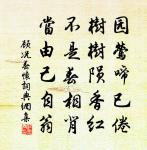 园鶯啼已倦
樹樹隕香紅
不是春相背
當由己自翁
顧况春懷詞典網集